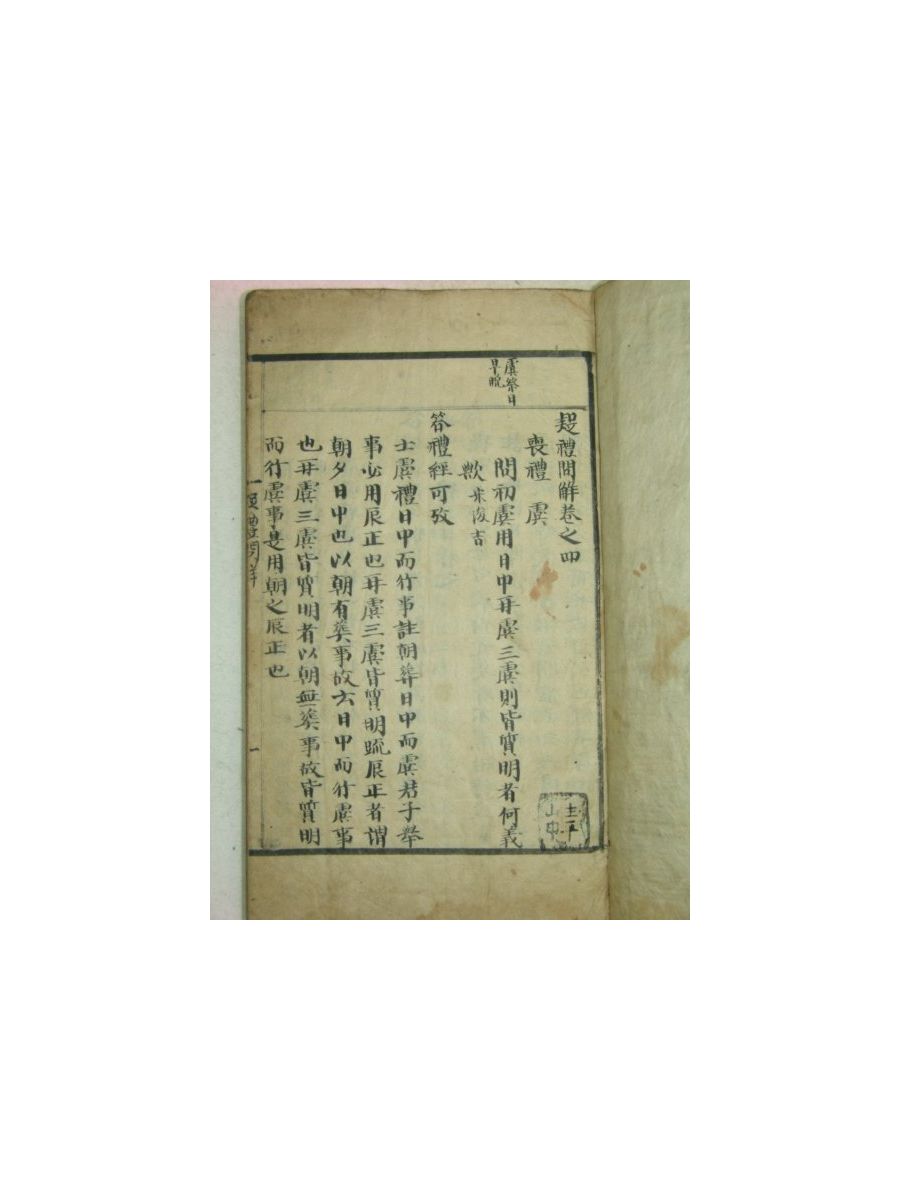 疑禮問解卷之四
喪禮 虞
虞祭日
早晩
問初虞用日中再虞三虞則皆質明者何義
歟 宋浚吉
答禮經可攷
士虞禮日中而行事註朝葬日中而虞君子舉
事必用辰正也再虞三虞皆質明疏辰正者謂
朝夕日中也以朝有葬事故云日中而行虞事
也再虞三虞皆質明者以朝無葬事故皆質明
而行虞事是用朝之辰正也
疑禮問解
一